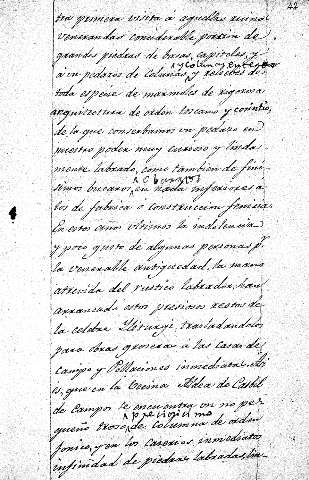 44
tra primera visita a aquellas ruinas
venerandas considerable porcion de
grandes piedras de basas, capiteles, y
aun pedazos de colunas, y relebes de
toda especie de marmoles de rigorosa
arquitectura de orden toscano y corintio,
de la que conserbamos un pedazo en
nuestro poder muy curioso y linda-
mente labrado, como tambien de finí-
simos bucaros, en nada inferiores a
los de fabrica o construccion fenicia.
En estos años ultimos la indolencia
y poco gusto de algunas personas pr.
la venerable antiguedad, la mano
atrevida del rustico labrador, han
arrancado estos preciosos restos de
la celebre Iliturgi, trasladandolos
para obras groseras a las casas de
campo y Poblaciones inmediatas. Asi
es, que en la Vecina Aldea de Castil
de Campos se encuentra un no pe-
queño trozo de columna de orden
jonico, y en los caserios inmediatos
infinidad de piedras labradas,